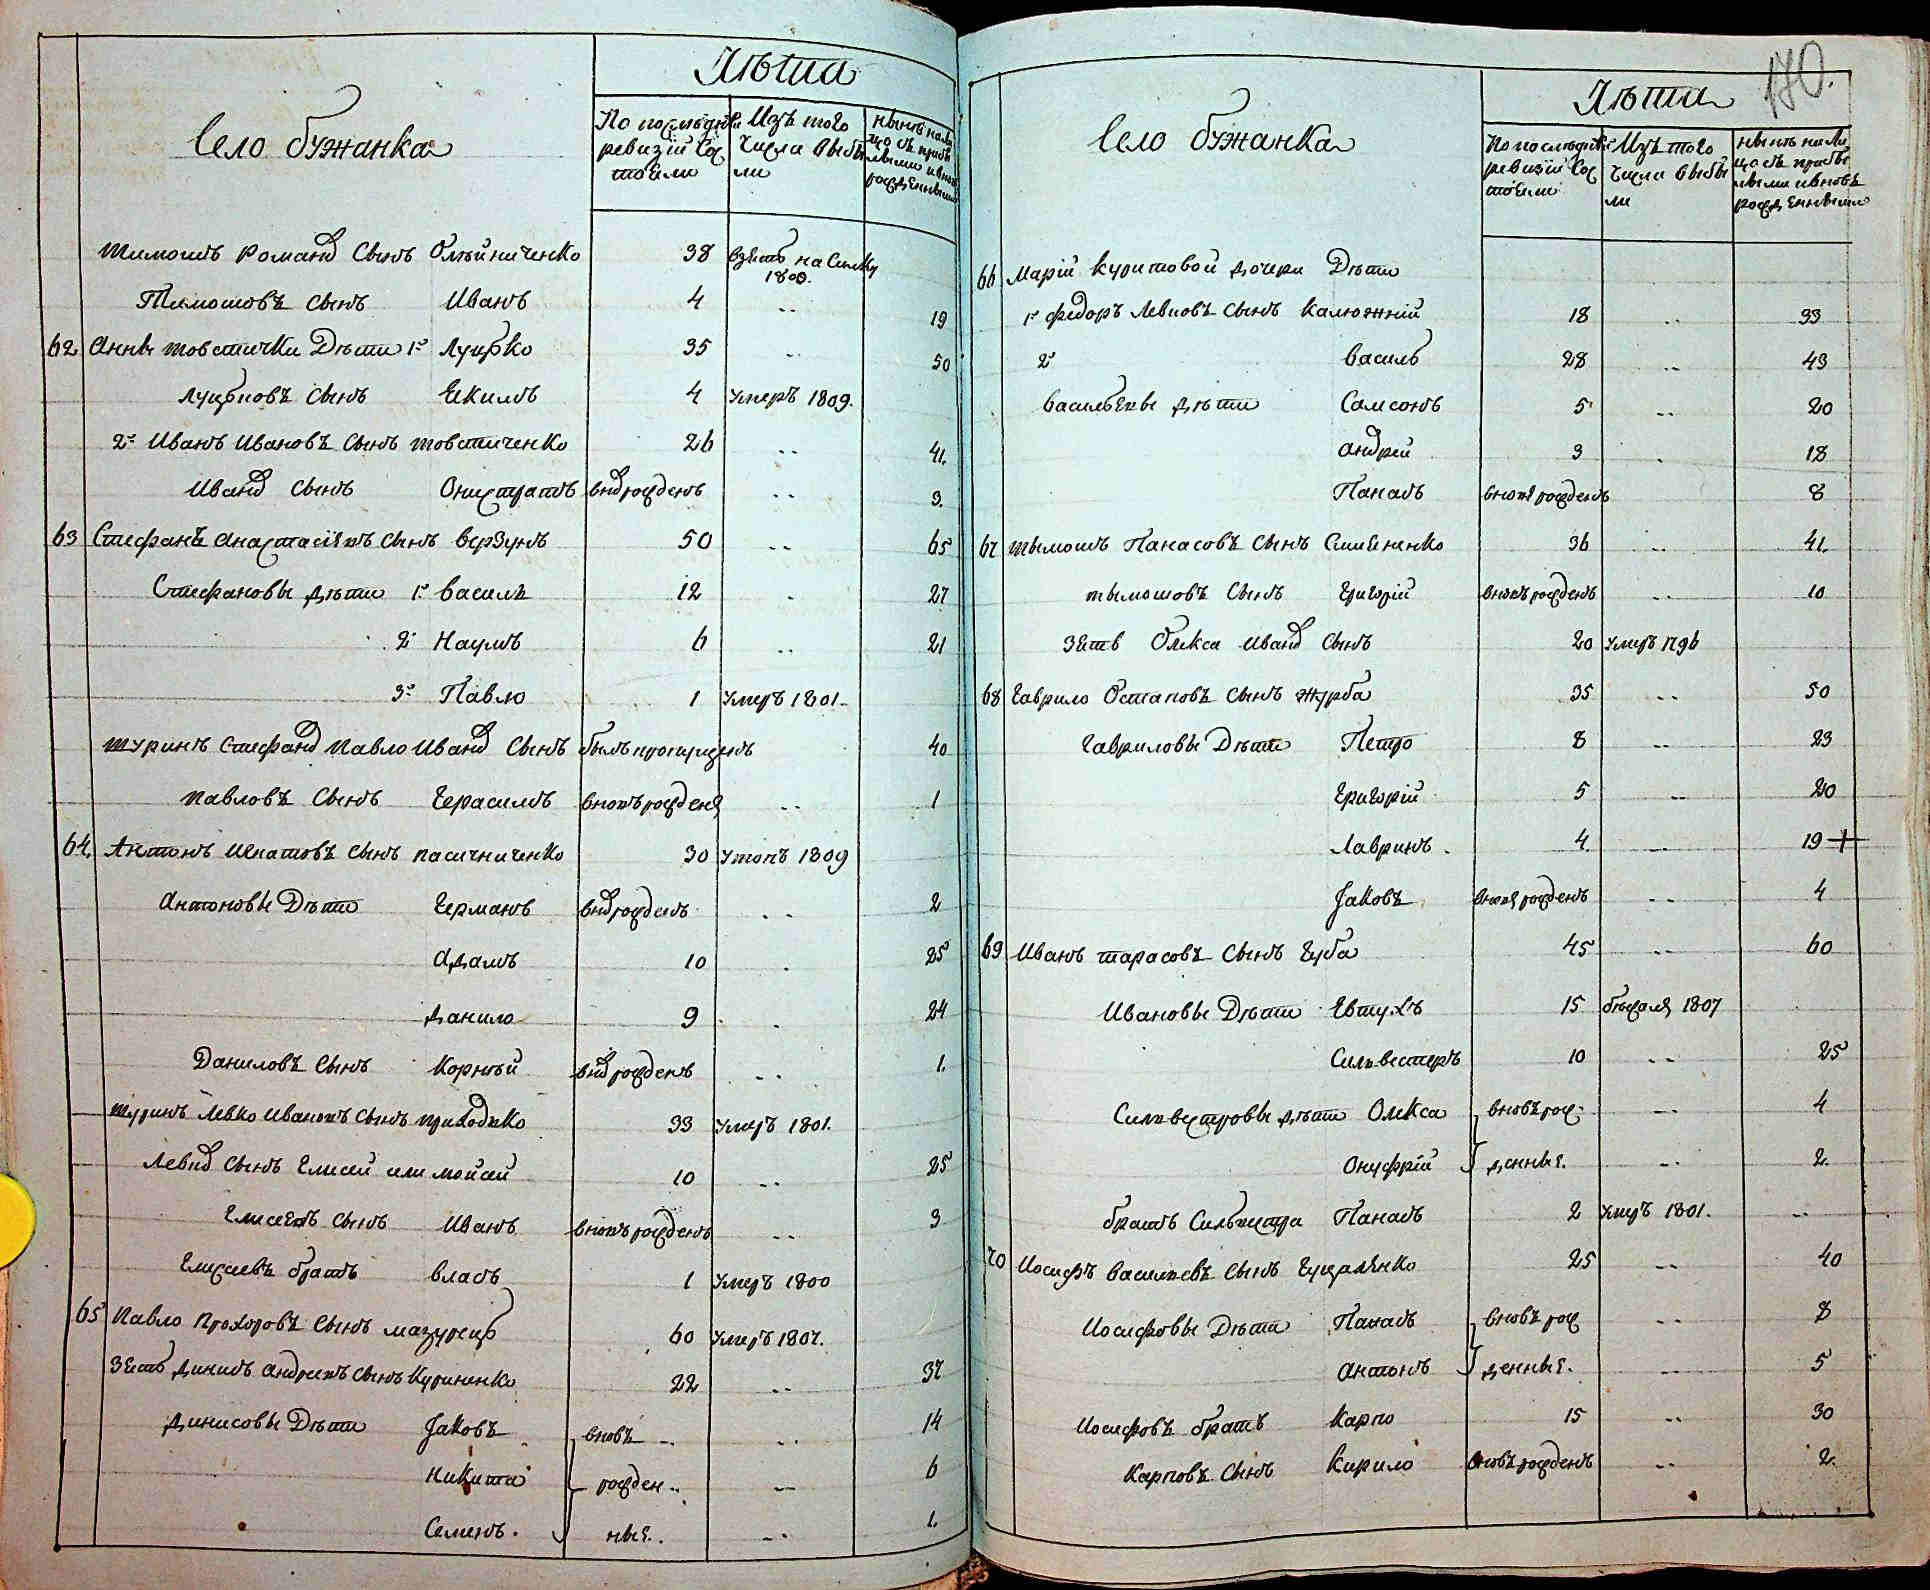 Село бужанка
Лѣта
По послѣднѣй ревизїи состояли
Изъ того числа выбыли
нынѣ на лицо съ прибылыми и вновь рожденными
тимошъ Романъ Сынъ Олѣйниченко 38 взятъ на 1800.
Тимошовъ Сынъ Иванъ 4 .. 19
62 Анны товстички Дѣти 1й Луцько 35 .. 50
луцьковъ Сынъ Екимъ 4 умеръ 1809.
2й Иванъ Ивановъ Сынъ товстиченко 26 .. 41.
Иванъ Сынъ Онистратъ внъ рожденъ .. 3.
63 Стефанъ Анастасіевъ Сынъ верзунъ 50 .. 65
Стефановы дѣти 1й василь 12 . 27
2й Наумъ 6 .. 21
3й Павло 1 умеръ 1801.
шуринъ Стефанъ Павло Иванъ Сынъ былъ пропущенъ 40
Павловъ Сынъ Герасимъ вновь рожденъ .. 1
64 Антонъ Игнатовъ Сынъ пасичниченко 30 утопъ 1809
Антоновы Дѣти Германъ внъ рожденъ .. 2
Адамъ 10 . 25
Данило 9 . 24
Даниловъ Сынъ Корнѣй внъ рожденъ .. 1.
шуринъ Левко Ивановъ Сынъ приходько 33 умеръ 1801.
Левкъ Сынъ Елисей или мойсей 10 .. 25
Елисеевъ Сынъ Иванъ вновь рожденъ .. 3
Елисеевъ братъ власъ 1 умеръ 1800
65 Павло Прохоровъ Сынъ мазурецъ 60 умеръ 1807.
Зять Динисъ Андреевъ Сынъ Куриненко 22 .. 37
Динисовы Дѣти Jаковъ вновь .. 14
Никита рожден .. 6
Семенъ. ные. .. 1.
170.
Село бужанка
Лѣта
По послѣднѣй ревизїи состояли
Изъ того числа выбыли
нынѣ на лицо съ прибылыми и вновь рожденными
66 Марій дочери Дѣти
1й федоръ Левковъ Сынъ Калюжній 18 .. 33
2й василь 28 .. 43
васильевы дѣти Самсонъ 5 .. 20
Андрей 3 . 18
Панасъ вновь рожденъ 8
67 тымошъ Панасовъ Сынъ 36 .. 41.
тымошовъ Сынъ Григорій вновь рожденъ .. 10
Зять Олекса Иванъ Сынъ 20 умеръ 1796
68 Гаврило Остаповъ Сынъ журба 35 .. 50
Гавриловы Дѣти Петро 8 .. 23
Григорій 5 .. 20
Лавринъ. 4. .. 19 +
Jаковъ вновь рожденъ .. 4
69 Иванъ тарасовъ Сынъ Губа 45 .. 60
Ивановы Дѣти Евтухъ 15 бѣжалъ 1807
Сильвестеръ 10 .. 25
Сильвестровы дѣти Олекса вновь рож .. 4
Онуфрій денные. .. 2.
братъ Сильвестра Панасъ 2 умеръ 1801. ..
70 Иосифъ васильевъ Сынъ Гуцаленко 25 .. 40
Иосифовы Дѣти Панасъ вновь рож .. 8
Антонъ денные. .. 5
Иосифовъ братъ Карпо 15 .. 30
Карповъ Сынъ Кирило вновь рожденъ .. 2.